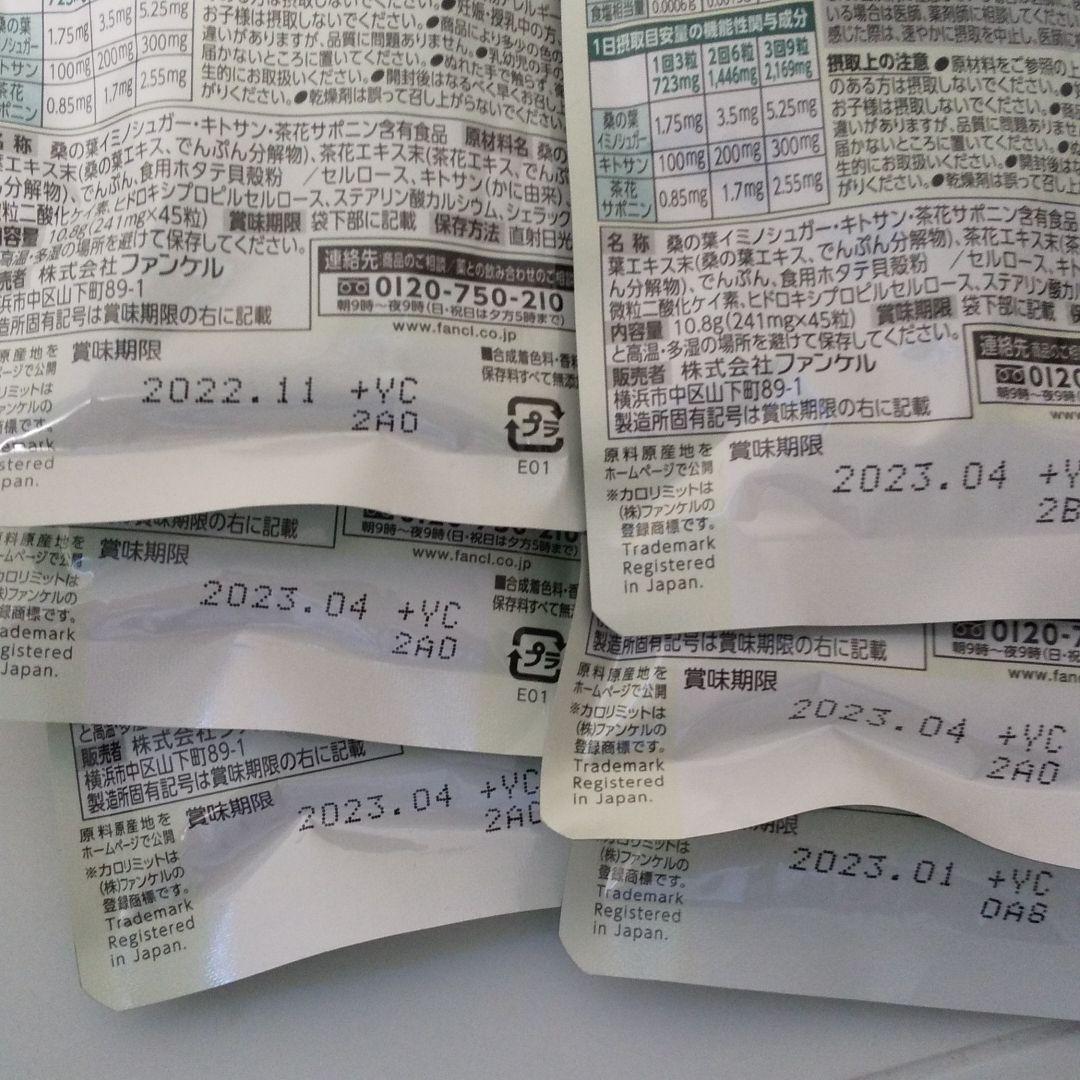 桑の葉
イミノシュガー
1.75mg 3.5mg 5.25mg
キトサン 100mg 200mg 300mg
茶花
サポニン 0.85mg 1.7mg 2.55mg
お子様は摂取しないでください。●商品により多少の色の
違いがありますが、品質に問題ありません。●乳幼児の手の
届かないところに置いてください。●ぬれた手で触らず、衛
生的にお取扱いください。●開封後はなるべく早くお召し上
がりください。●乾燥剤は誤って召し上がらないでください。
名 称 桑の葉イミノシュガー・キトサン・茶花サポニン含有食品 原材料名 桑の
葉エキス末(桑の葉エキス、でんぷん分解物)、茶花エキス末(茶花エキス、でんぷ
ん分解物)、でんぷん、食用ホタテ貝殻粉 / セルロース、キトサン(かに由来)、
微粒二酸化ケイ素、ヒドロキシプロピルセルロース、ステアリン酸カルシウム、シェラック
内容量 10.8g(241mg×45粒) 賞味期限 袋下部に記載 保存方法 直射日光
高温・多湿の場所を避けて保存してください。
販売者 株式会社ファンケル
横浜市中区山下町89-1
製造所固有記号は賞味期限の右に記載
連絡先:商品のご相談/薬との飲み合わせのご相談
0120-750-210
朝9時〜夜9時(日・祝日は夕方5時まで)
www.fancl.co.jp
原産地を
ページで公開
カロリミットは
ファンケルの
商標です。
mark
stered
pan.
賞味期限
2022.11 +YC
2A0
■合成着色料・香料
保存料すべて無添加
プラ
E01
食塩相当量 0.0006g
1日摂取目安量の機能性関与成分
1回3粒 2回6粒 3回9粒
723mg 1,446mg 2,169mg
桑の葉
イミノシュガー
1.75mg 3.5mg 5.25mg
キトサン 100mg 200mg 300mg
茶花
サポニン 0.85mg 1.7mg 2.55mg
いる場合は医師、薬剤師に相談してください
感じた際は、速やかに摂取を中止し、医師に
摂取上の注意 ●原材料をご参照の上
のある方は摂取しないでください。
お子様は摂取しないでください。●商品
違いがありますが、品質に問題ありませ
届かないところに置いてください。●ぬ
生的にお取扱いください。●開封後はな
がりください。●乾燥剤は誤って召し上
名 称 桑の葉イミノシュガー・キトサン・茶花サポニン含有食品
葉エキス末(桑の葉エキス、でんぷん分解物)、茶花エキス末(茶
ん分解物)、でんぷん、食用ホタテ貝殻粉 / セルロース、キト
微粒二酸化ケイ素、ヒドロキシプロピルセルロース、ステアリン酸カル
内容量 10.8g(241mg×45粒) 賞味期限 袋下部に記載
と高温・多湿の場所を避けて保存してください。
販売者 株式会社ファンケル
横浜市中区山下町89-1
製造所固有記号は賞味期限の右に記載
連絡先:商品のご相
0120
原料原産地を
ホームページで公開
※カロリミットは
(株)ファンケルの
登録商標です。
Trademark
Registered
in Japan.
賞味期限
2023.04 +Y
2B
賞味期限の右に記載
朝9時〜夜9時(日・祝日は夕方5時まで)
www.fancl.co.jp
料原産地を
ームページで公開
カロリミットは
株)ファンケルの
録商標です。
ademark
gistered
Japan.
賞味期限
2023.04 +YC
2A0
■合成着色料・香
保存料すべて無添
プラ
E01
製造所固有記号は賞味期限の右に記載
0120-7
朝9時〜夜9時(日・祝
www.fanc
原料原産地を
ホームページで公開
※カロリミットは
(株)ファンケルの
登録商標です。
Trademark
Registered
in Japan.
賞味期限
2023.04 +YC
2A0
と高温・多湿
販売者 株式会社
横浜市中区山下町89-1
製造所固有記号は賞味期限の右に記載
原料原産地を
ホームページで公開
※カロリミットは
(株)ファンケルの
登録商標です。
Trademark
Registered
in Japan.
賞味期限
2023.04 +YC
2A0
味期限
カロリミットは
(株)ファンケルの
登録商標です。
Trademark
Registered
in Japan.
2023.01 +YC
0A8